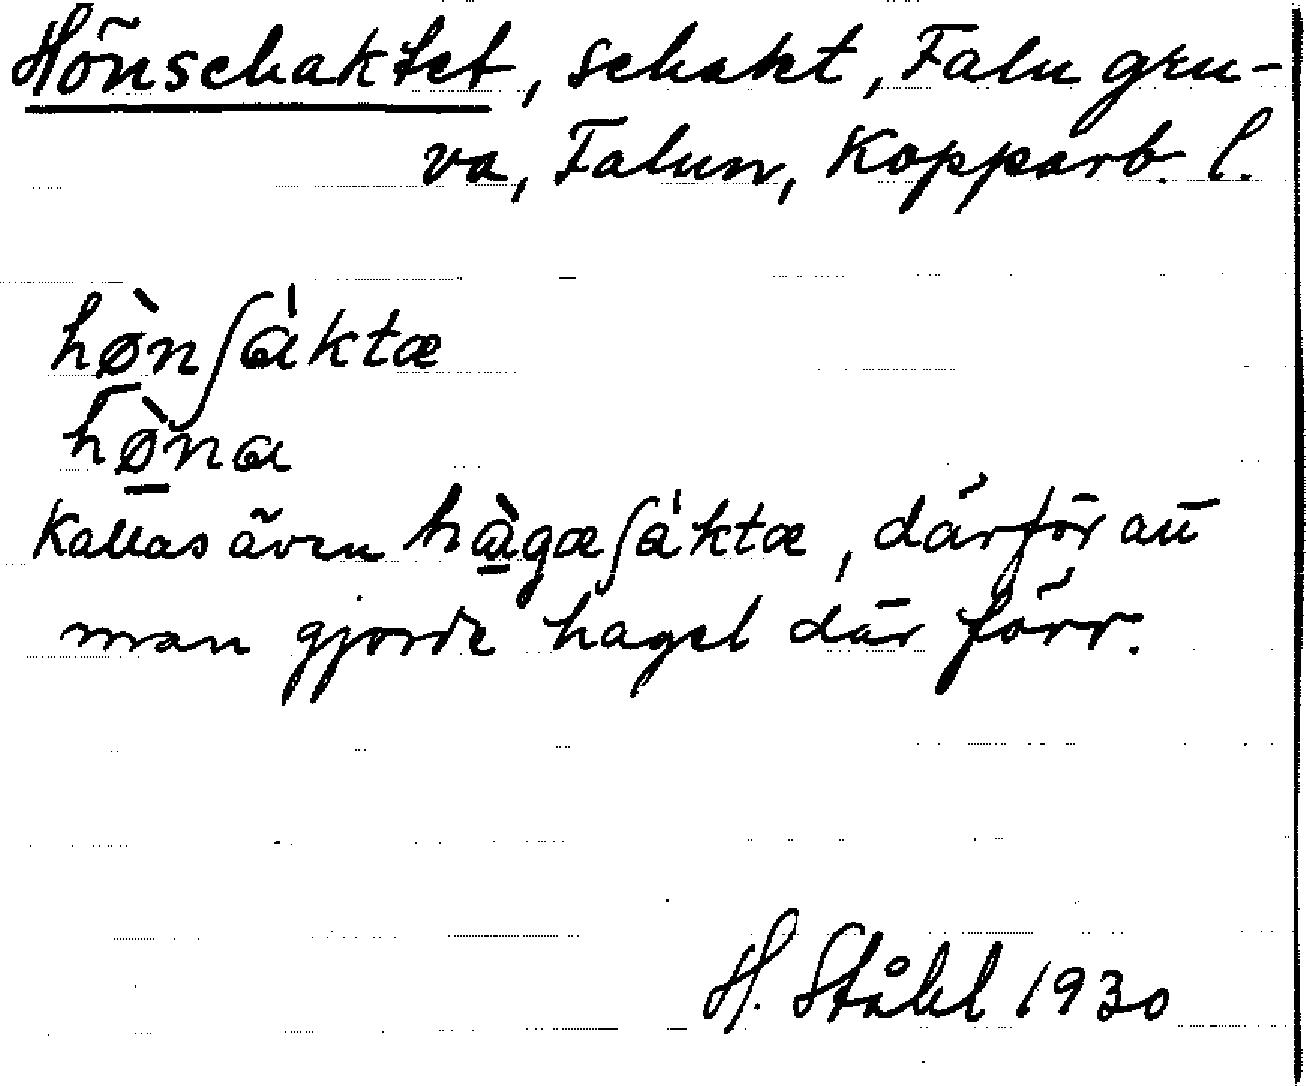 Hönschaktet, schakt, Falu gru-
va, Falun, Kopparb. l.
hø̀nʃáktæ
hø̠̀na
Kallas även hà̠gæʃáktæ, därför att
man gjorde hagel där förr.
H. Ståhl 1930